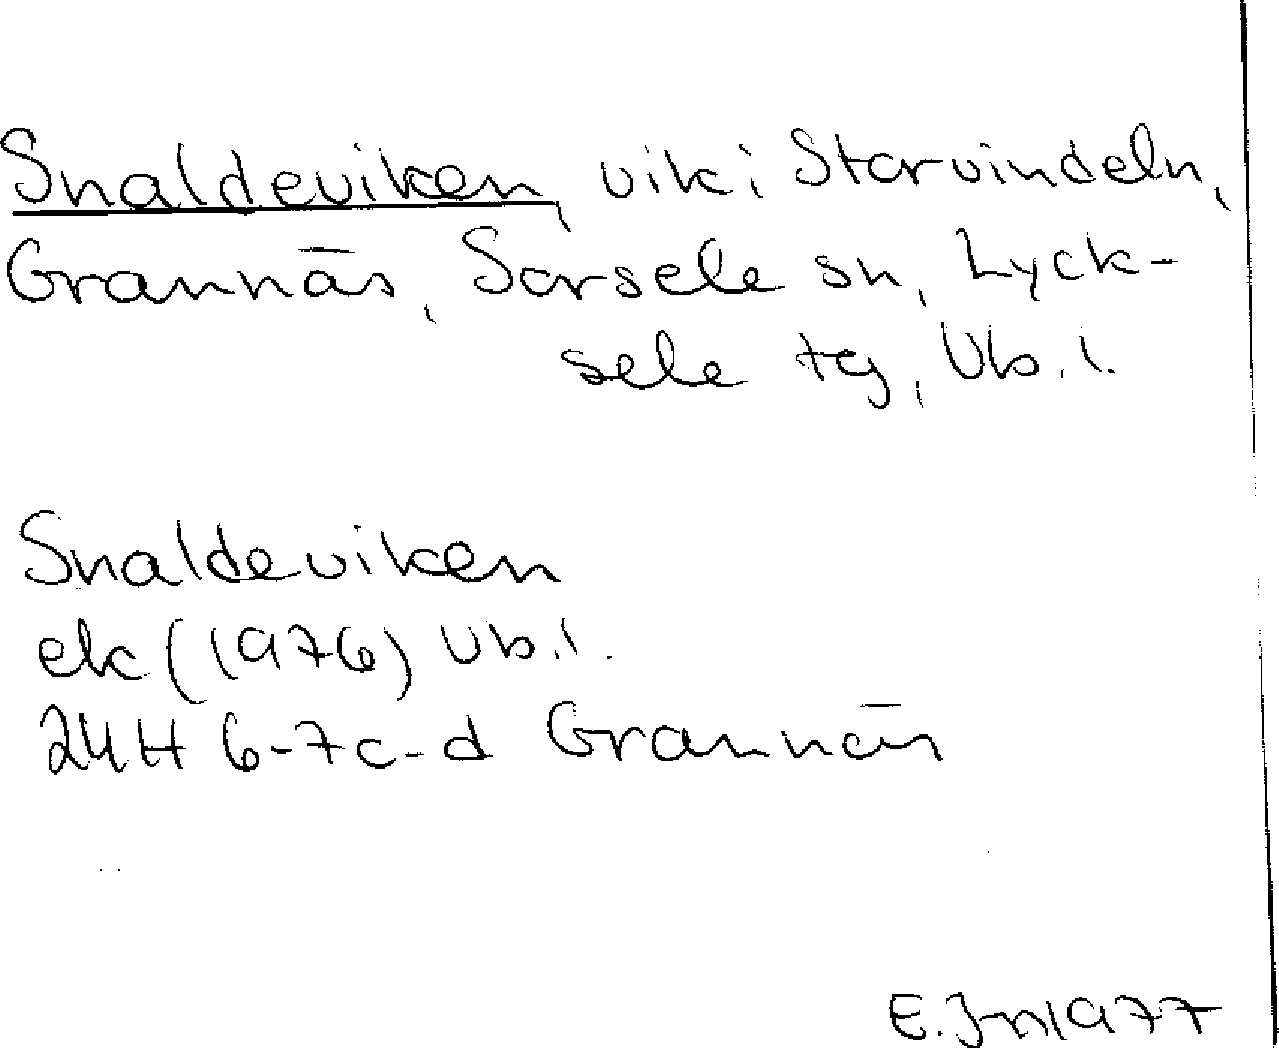 Snaldeviken, vik i Storvindeln,
Grannäs, Sorsele sn, Lyck-
sele tg, Vb. l.
Snaldeviken
ek (1976) Vb. l.
24H 6-7c-d Grannäs
E. Jn 1977